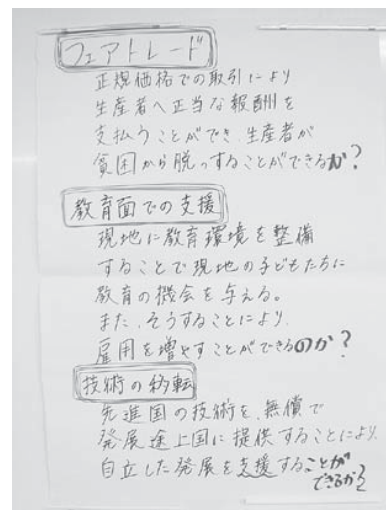 フェアトレード
正規価格での取引により
生産者へ正当な報酬を
支払うことができ、生産者が
貧困から脱っすることができるか?
教育面での支援
現地に教育環境を整備
することで現地の子どもたちに
教育の機会を与える。
また、そうすることにより、
雇用を増やすことができるのか?
技術の移転
先進国の技術を、無償で
発展途上国に提供することにより、
自立した発展を支援することが
できるか?